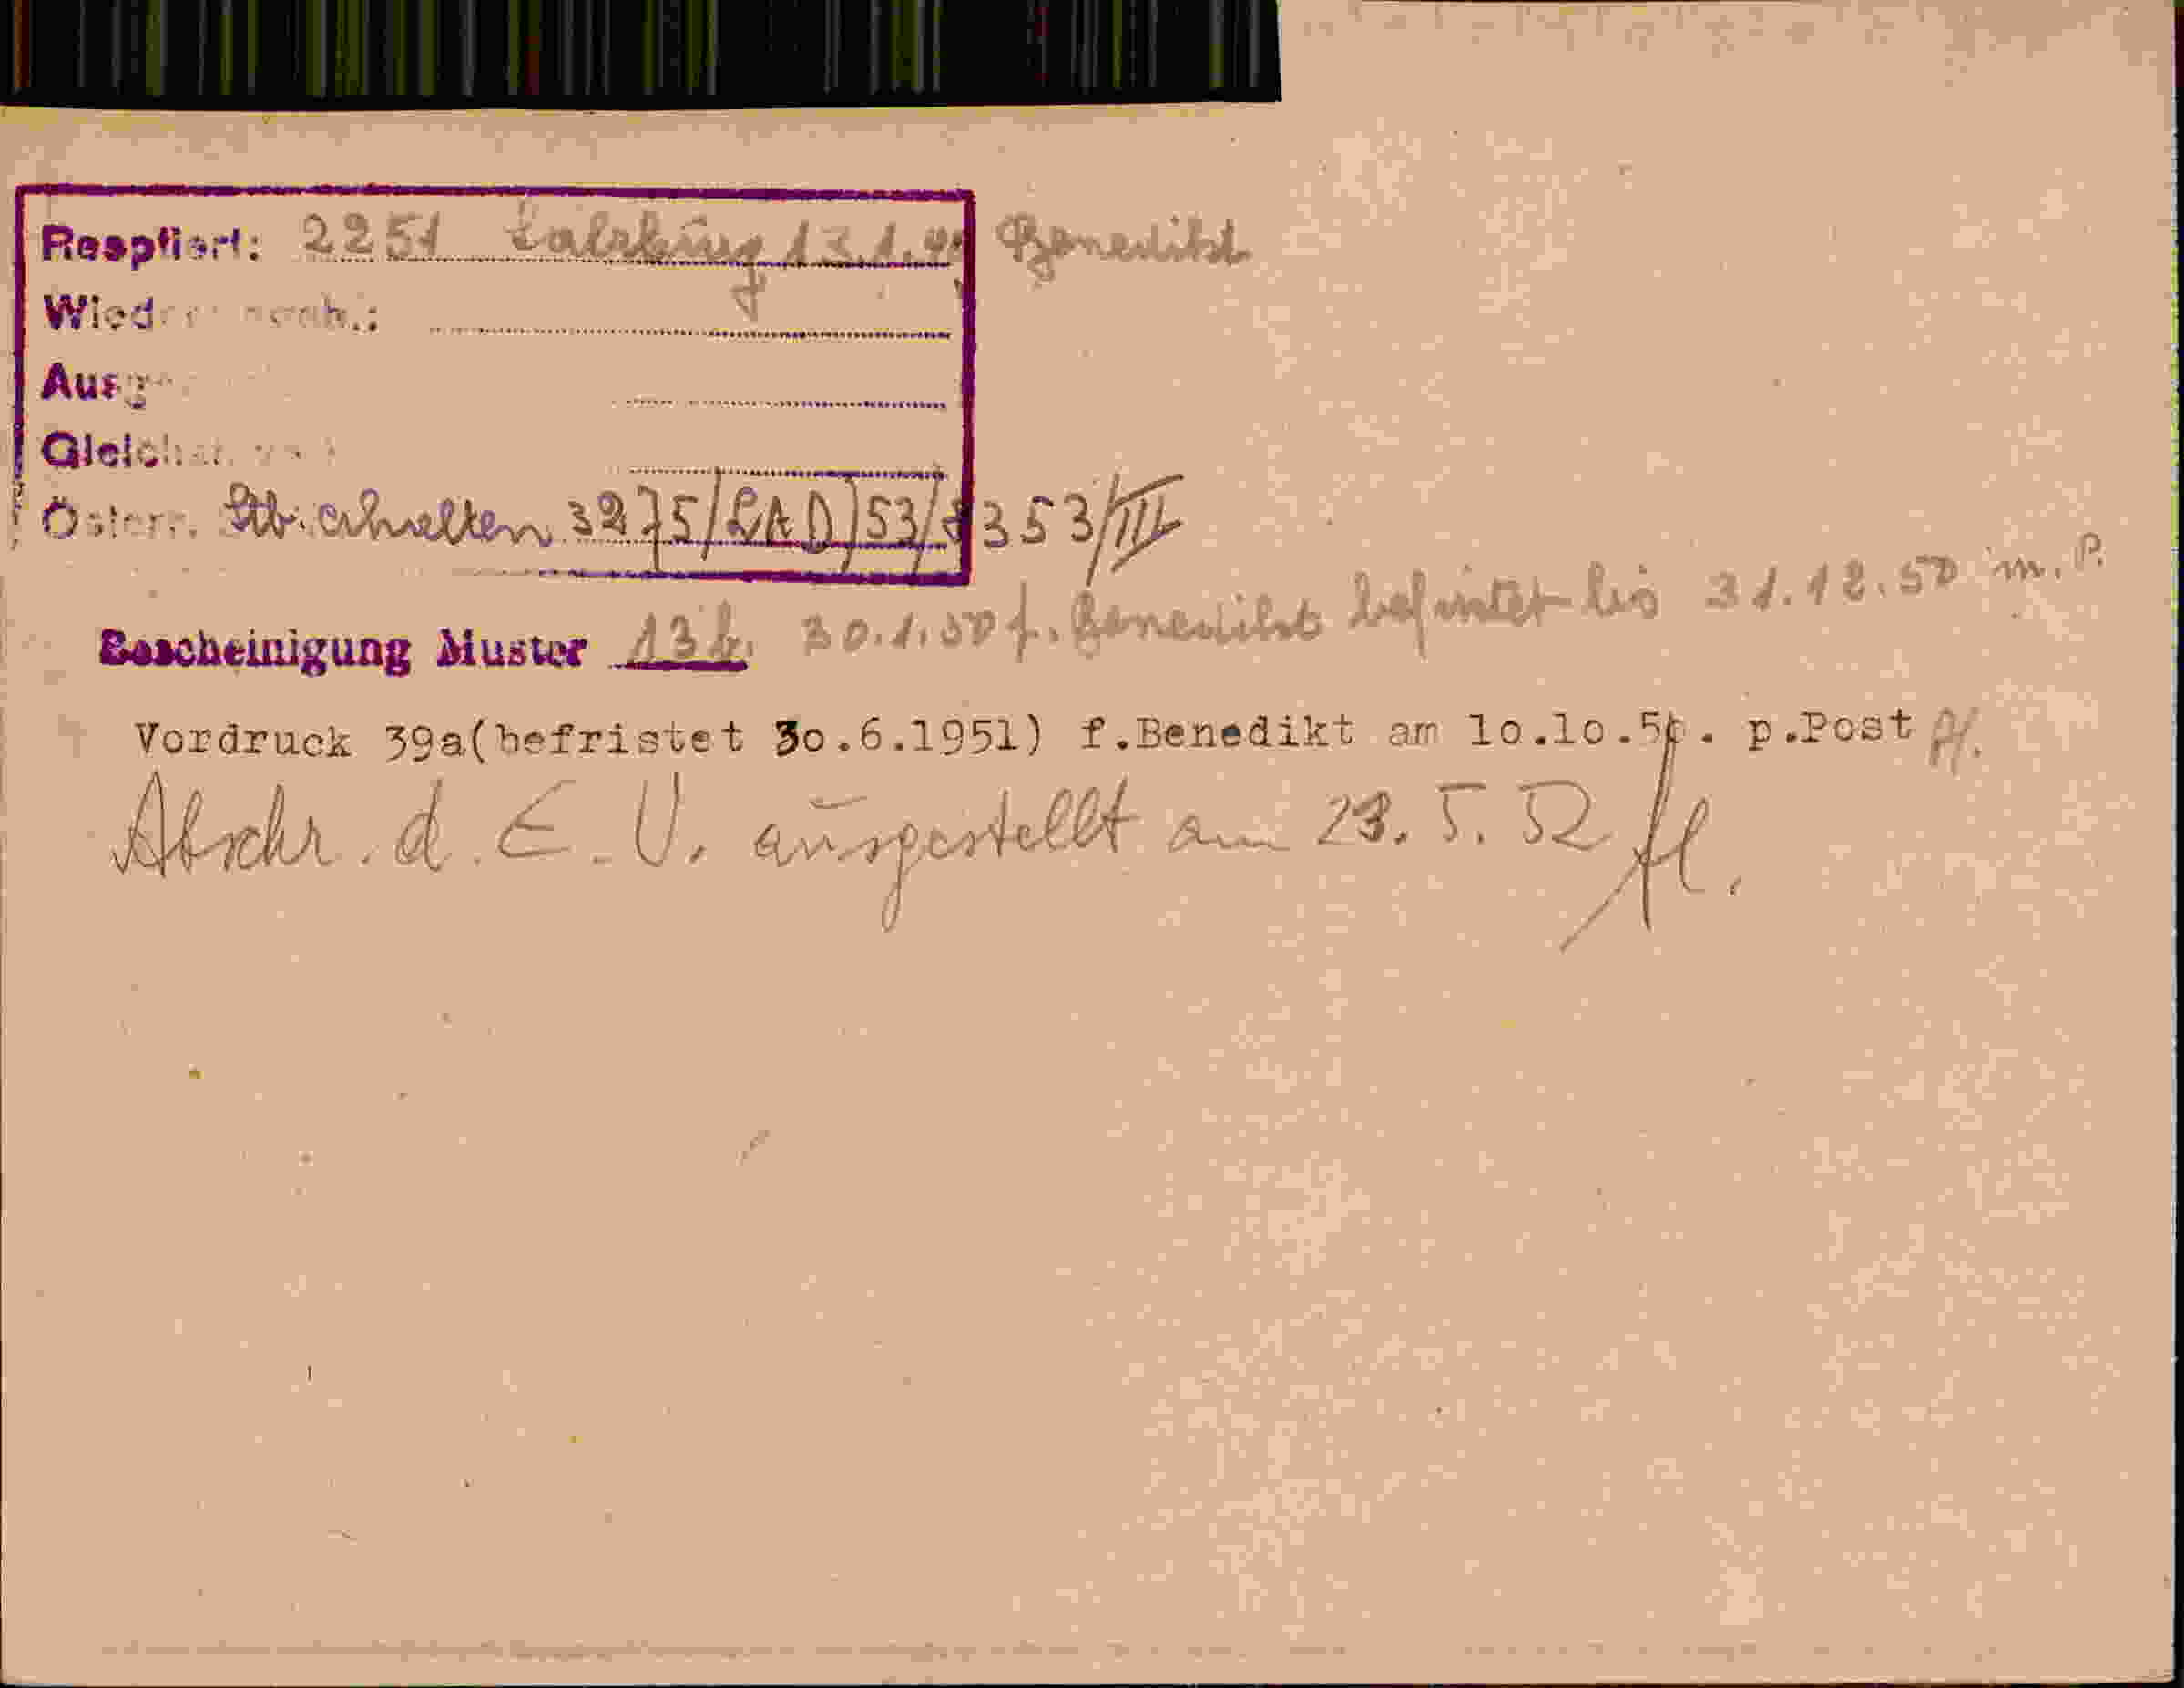 Resptiert: 2251 Salzburg 13.1. Benedikt
Wied
Ausg
Gleich
Österr. Stb. erhalten 3275/LAD/53/8353/III
Bescheinigung Muster 13b. 30.1.50 f. Benedikt befristet bis 31.12.50 m. P.
Vordruck 39a(befristet 3o.6.1951) f.Benedikt am 1o.1o.50. p.Post
Abschr. d. E. U. ausgestellt am 23. 5. 52